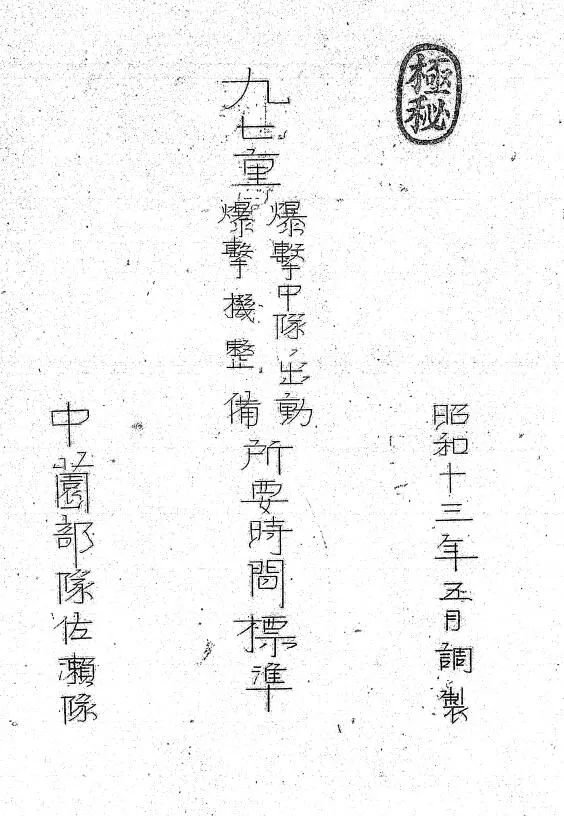 極秘
昭和十三年五月調製
九七重(一)
爆撃中隊出動
爆撃機整備
所要時間標準
中薗部隊佐瀬隊